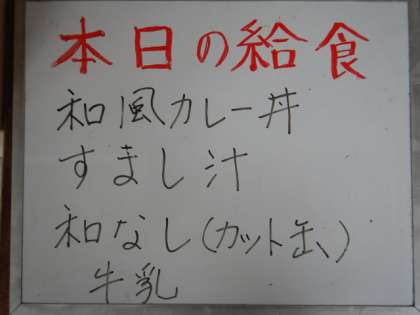 本日の給食
和風カレー丼
すまし汁
和なし(カット缶)
牛乳